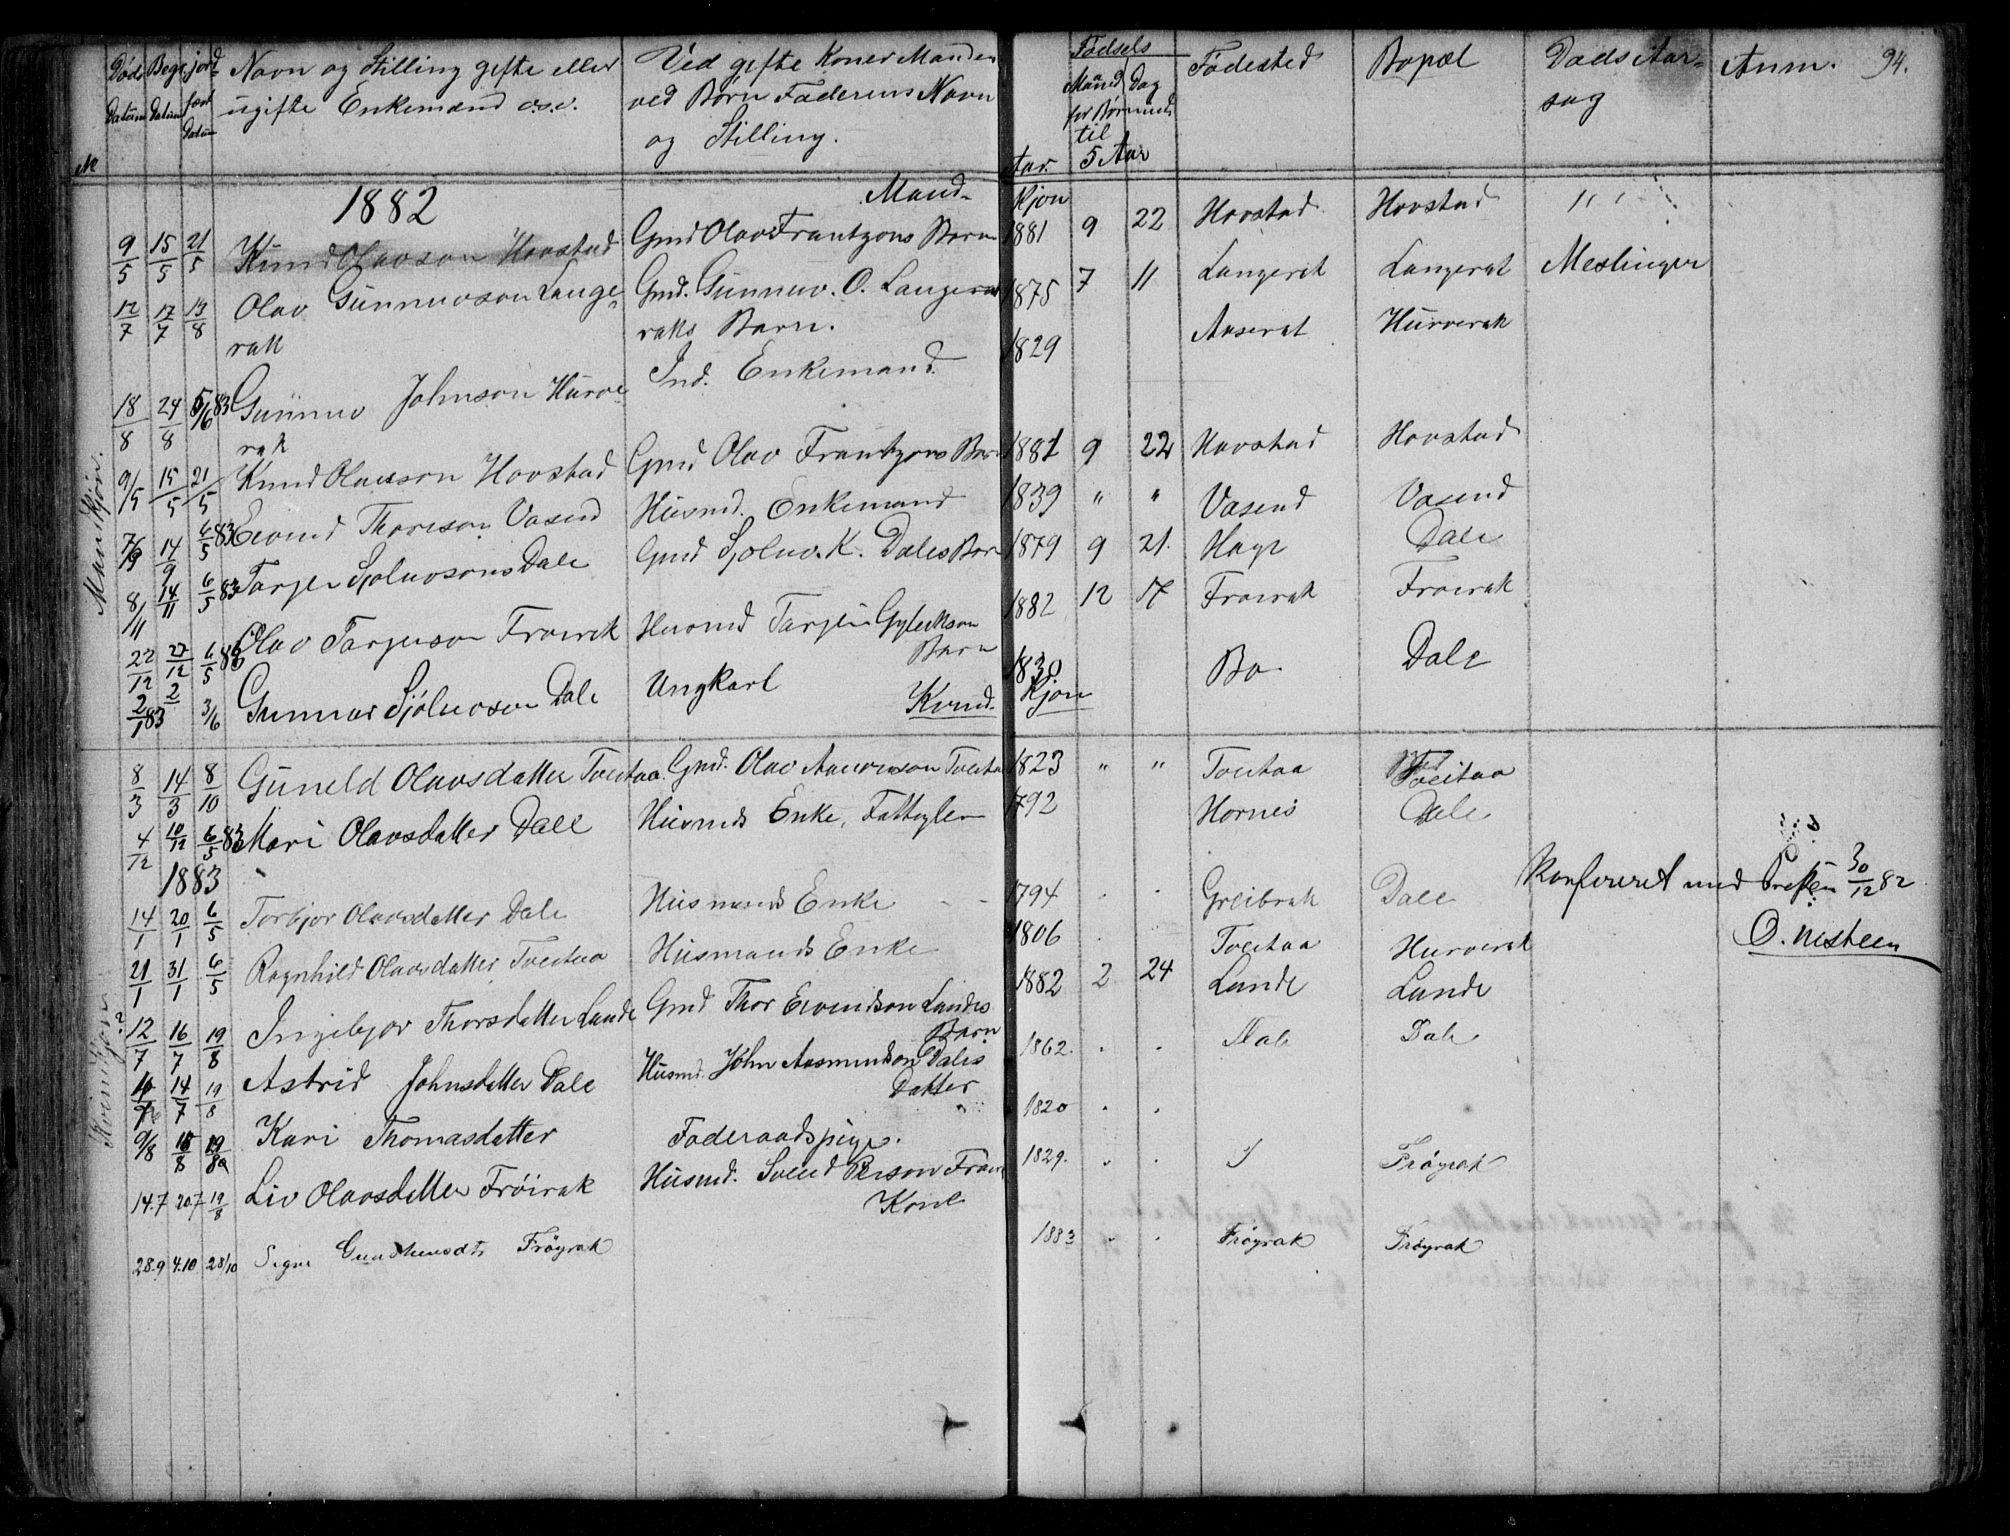 94.
№ Døds Datum Begr. Datum jordfæst Datum Navn og Stilling gifte eller ugifte Enkemænd o.s.v. Ved gifte Koner Manden ved Børn Faderens Navn og Stilling. Aar. Fødsels Maaned Dag for Børn under til 5 Aar Fødested Bopæl Dødsaarsag Anm.
1882 Mand- Kjøn
Mandkjøn.
9/5 15/5 21/5 Knud Olavson Hovstad Gmd Olav Frantzons Barn 1881 9 22 Hovstad Hovstad " "
12/7 17/7 13/8 Olav Gunnuvson Lange-
rak Gmd. Gunnuv. O. Lange-
raks Barn. 1875 7 11 Langerak Langerak Meslinger
18/8 24/8 5/6 83 Gunnuv Johnson Hurve-
rak Ind. Enkemand. 1829 Aaserat Hurverak
9/5 15/5 21/5 Knud Olavson Hovstad Gmd Olav Frantzons Barn 1881 9 22 Hovstad Hovstad
7/9 14/9 6/5 83 Eivind Thoreson Vasend Husmd. Enkemand 1839 " " Vasend Vasend
8/11 14/11 6/5 83 Tarjer Sjoluvsons Dale Gmd Sjoluv. K. Dales Barn 1879 9 21. Hage Dale
22/12 27/12 6/5 83 Olav Tarjerson Froirak Husmd Tarjer Gjeruldson
Barn 1882 12 17 Froirak Froirak
2/1 83 3/6 Gunnar Sjöluvson Dale Ungkarl 1830 Bo Dale
Kvind- Kjøn
Kvindkjøn.
8/3 14/3 8/10 Guneld Olavsdatter Tveitaa Gmd. Olav Aanonson Tveitaa 1823 " " Tveitaa Tveitaa
4/12 10/12 6/5 83 Mari Olavsdatter Dale Husmds Enke, Fattiglem 1792 Hornes Dale
1883
Konfereret med Presten 30/12 82
14/1 20/1 6/5 Torbjor Olavsdatter Dale Husmands Enke 1794 Greibrok Dale
O. Nesteen
21/1 31/1 6/5 Ragnhild Olavsdatter Tveitaa Husmands Enke 1806 Tveitaa Hurverak
12/7 16/7 19/8 Ingebjor Thorsdatter Lande Gmd Thor Eivindson Landes
Barn 1882 2 24 Lande Lande
14/7 19/8 Astrid Johnsdatter Dale Husmd. John Aasmundson Dales
Datter 1862. Dale Dale
9/8 18/8 19/8 Kari Thomasdatter Føderaadspige. 1820
14.7 20.7 19/8 Liv Olavsdatter Frøirak Husmd. Svend Person Froir
Kone 1829. Frøyrak
28.9 4.10 28/10 Signe Gundsteinsdt. Frøyrak 1883 Frøyrak Frøyrak